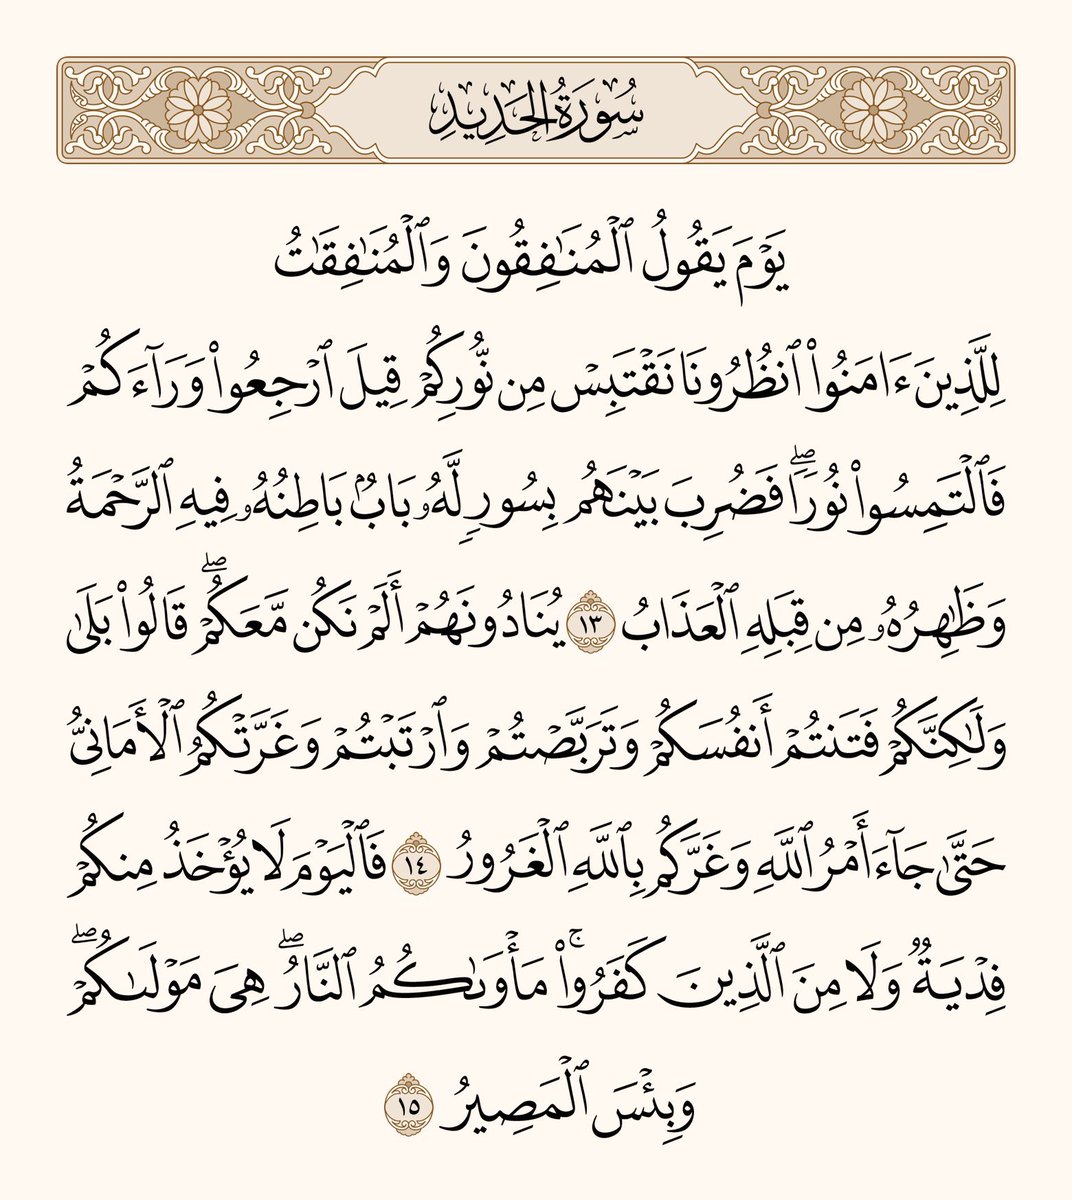 سُورَةُ الحَدِيدِ
يَوۡمَ يَقُولُ ٱلۡمُنَٰفِقُونَ وَٱلۡمُنَٰفِقَٰتُ
لِلَّذِينَ ءَامَنُواْ ٱنظُرُونَا نَقۡتَبِسۡ مِن نُّورِكُمۡ قِيلَ ٱرۡجِعُواْ وَرَآءَكُمۡ
فَٱلۡتَمِسُواْ نُورٗاۖ فَضُرِبَ بَيۡنَهُم بِسُورٖ لَّهُۥ بَابُۢ بَاطِنُهُۥ فِيهِ ٱلرَّحۡمَةُ
وَظَٰهِرُهُۥ مِن قِبَلِهِ ٱلۡعَذَابُ ١٣ يُنَادُونَهُمۡ أَلَمۡ نَكُن مَّعَكُمۡۖ قَالُواْ بَلَىٰ
وَلَٰكِنَّكُمۡ فَتَنتُمۡ أَنفُسَكُمۡ وَتَرَبَّصۡتُمۡ وَٱرۡتَبۡتُمۡ وَغَرَّتۡكُمُ ٱلۡأَمَانِيُّ
حَتَّىٰ جَآءَ أَمۡرُ ٱللَّهِ وَغَرَّكُم بِٱللَّهِ ٱلۡغَرُورُ ١٤ فَٱلۡيَوۡمَ لَا يُؤۡخَذُ مِنكُمۡ
فِدۡيَةٞ وَلَا مِنَ ٱلَّذِينَ كَفَرُواْۚ مَأۡوَىٰكُمُ ٱلنَّارُۖ هِيَ مَوۡلَىٰكُمۡۖ
وَبِئۡسَ ٱلۡمَصِيرُ ١٥